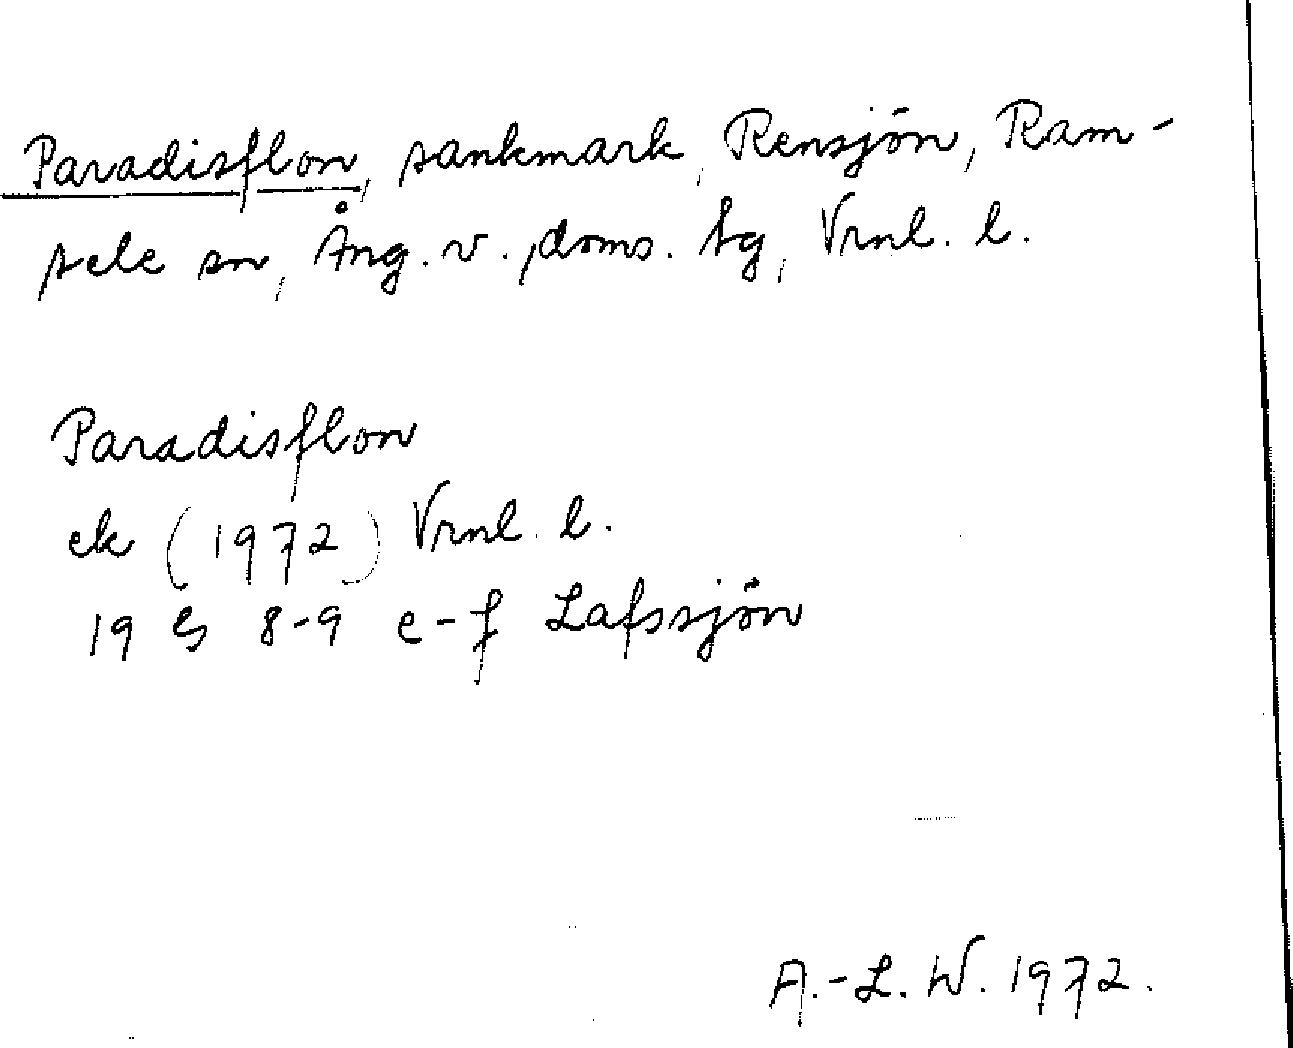 Paradisflon, sankmark, Rensjön, Ram-
sele sn, Ång. v. doms. tg, Vrnl. l.
Paradisflon
ek (1972) Vrnl. l.
19 G 8-9 e-f Lafssjön
A.-L. W. 1972.